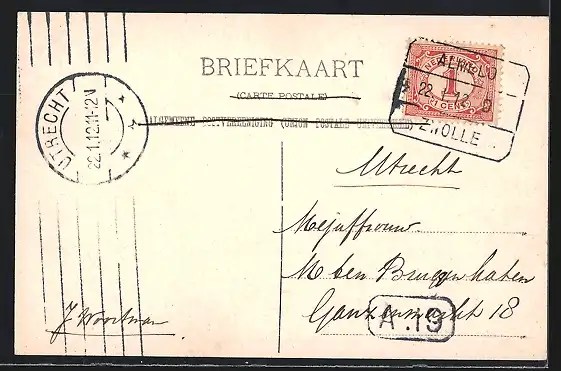 BRIEFKAART
(CARTE POSTALE)
ALGEMEENE POSTVEREENIGING (UNION POSTALE UNIVERSELLE)
UTRECHT
22.1.12.11-12V
NEDERLAND
1
1 CENT
ALMELO
22 1 12 D
ZWOLLE
Utrecht
Mejuffrouw
M den Bruggenhaten
Ganzenmarkt 18
A.19
J Woortman